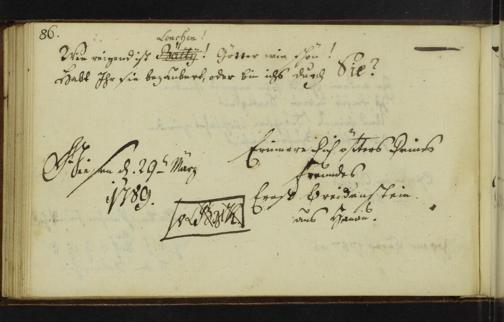 86.
Lonchen!
Wie reizend ist Kätty! Götter wie schön!
Habt Ihr sie bezaubert, oder bin ichs durch Sie?
Giesen d. 29t März
1789.
Erinnere dich öfters Deines
Freundes
Ernst Breidenstein
aus Hanau.